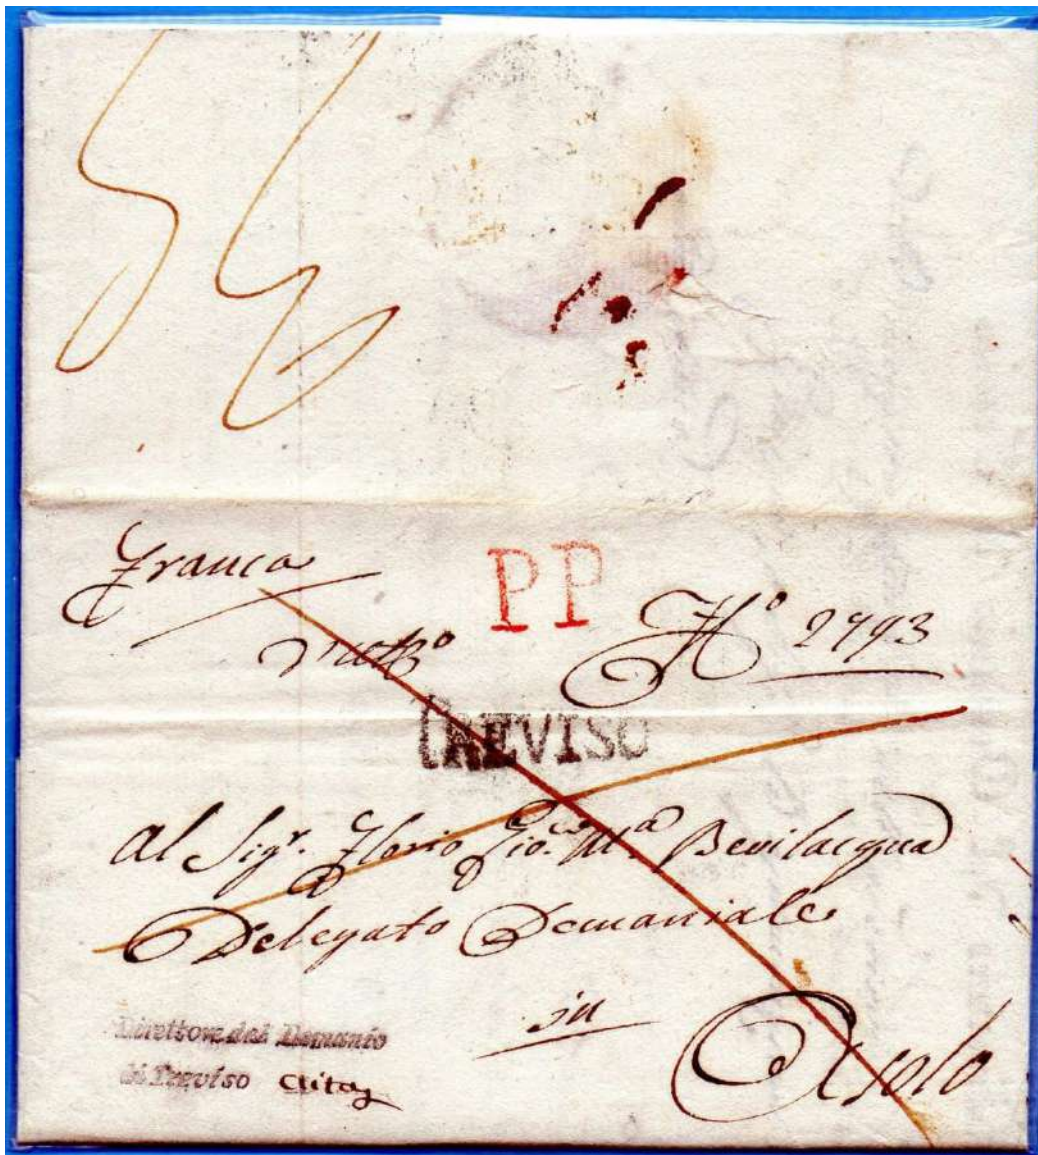 Franca
PP
N.o 2793
TREVISO
Al Sigr. Florio Gio. Ma. Bevilacqua
Delegato Demaniale
in
Asolo
Direttore del Demanio
di Treviso